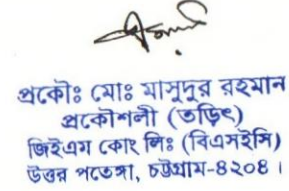 প্রকৌঃ মোঃ মাসুদুর রহমান
প্রকৌশলী (তড়িৎ)
জিইএম কোং লিঃ (বিএসইসি)
উত্তর পতেঙ্গা, চট্টগ্রাম-৪২০৪।